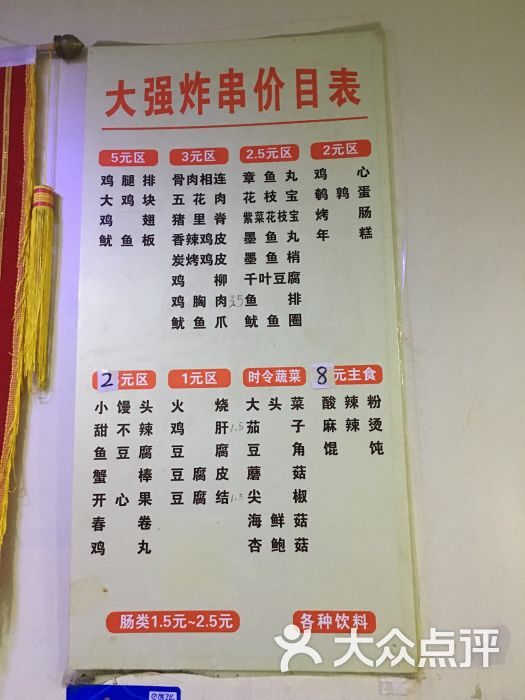 大强炸串价目表
5元区
鸡腿排
大鸡块
鸡翅
鱿鱼板
3元区
骨肉相连
五花肉
猪里脊
香辣鸡皮
炭烤鸡皮
鸡柳
鸡胸肉3.5
鱿鱼爪
2.5元区
章鱼丸
花枝宝
紫菜花枝宝
墨鱼丸
墨鱼梢
千叶豆腐
鱼排
鱿鱼圈
2元区
鸡心
鹌鹑蛋
烤肠
年糕
2元区
小馒头
甜不辣
鱼豆腐
蟹棒
开心果
春卷
鸡丸
1元区
火烧
鸡肝1.5
豆腐
豆腐皮
豆腐结1.5
时令蔬菜
大头菜
茄子
豆角
蘑菇
尖椒
海鲜菇
杏鲍菇
8元主食
酸辣粉
麻辣烫
馄饨
肠类1.5元~2.5元
各种饮料
大众点评